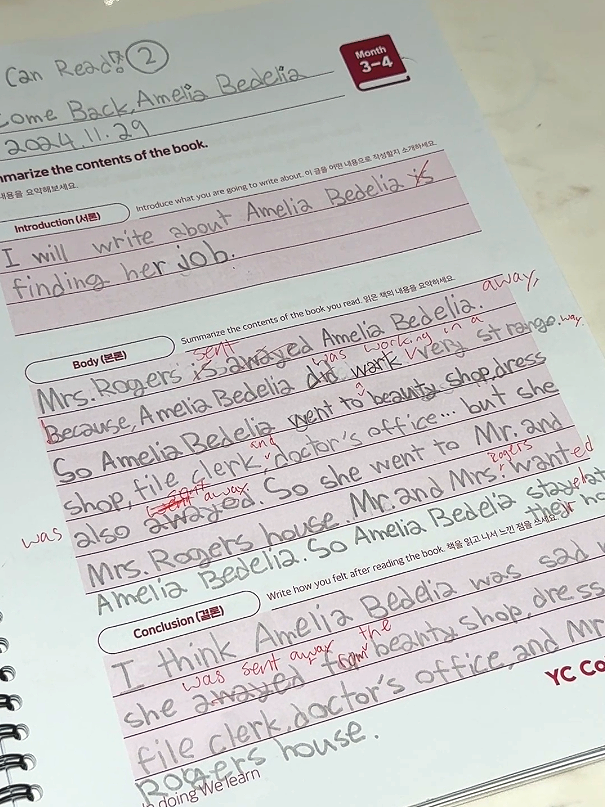 Can Read! ②
Month
3-4
Come Back, Amelia Bedelia
2024.11.29
marize the contents of the book.
내용을 요약해보세요.
Introduction (서론)
Introduce what you are going to write about. 이 글을 어떤 내용으로 작성할지 소개하세요.
I will write about Amelia Bedelia is
finding her job.
Body (본론)
Summarize the contents of the book you read. 읽은 책의 내용을 요약하세요.
sent away,
Mrs. Rogers is awayed Amelia Bedelia.
was working in a
Because, Amelia Bedelia did work very strange. way.
So Amelia Bedelia went to a beauty shop, dress
shop, file clerk, and doctor's office... but she
sent away.
was also awayed. So she went to Mr. and
Rogers
Mrs. Rogers house. Mr. and Mrs. wanted
Amelia Bedelia. So Amelia Bedelia stay at
their
Conclusion (결론)
Write how you felt after reading the book. 책을 읽고 나서 느낀 점을 쓰세요.
I think Amelia Bedelia was sad
was sent away from the
she awayed beauty shop, dress
file clerk, doctor's office, and Mr
Rogers house.
YC Co
doing We learn